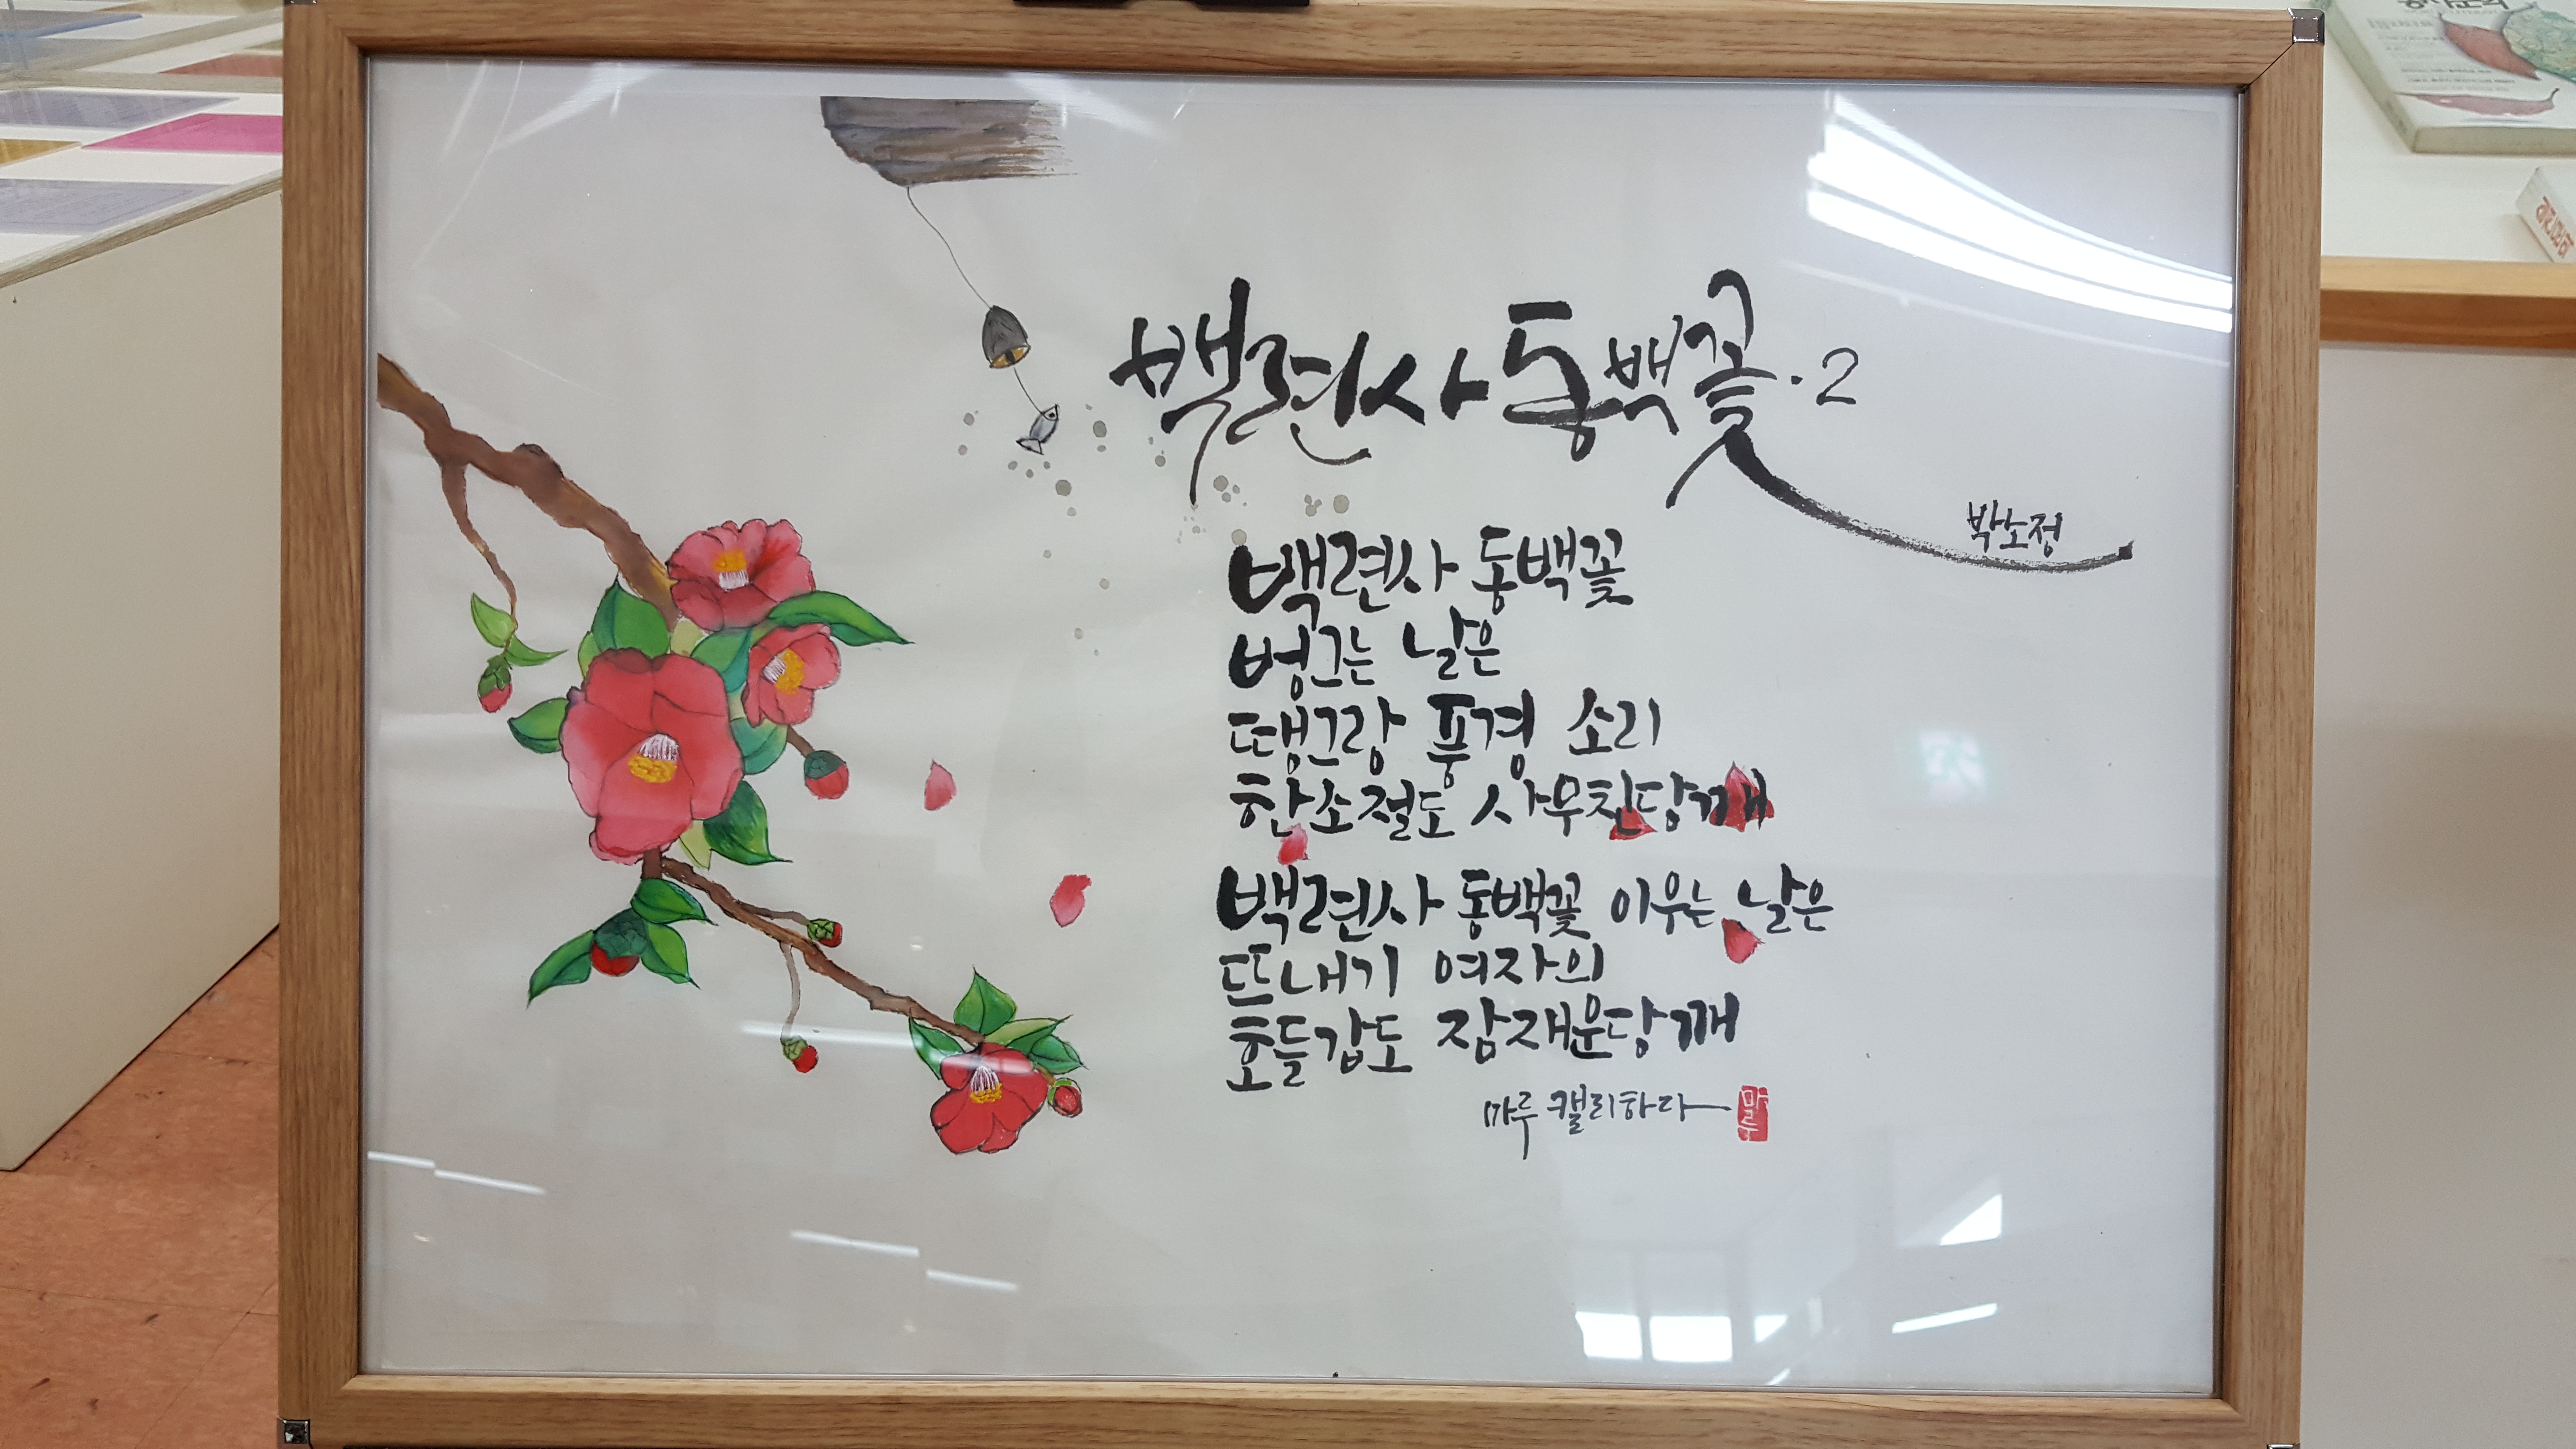 백련사동백꽃·2
박노정
백련사 동백꽃
벙그는 날은
땡그랑 풍경 소리
한소절도 사무친당깨
백련사 동백꽃 이우는 날은
뜨내기 여자의
호들갑도 잠재운당깨
마루 캘리하다
마루